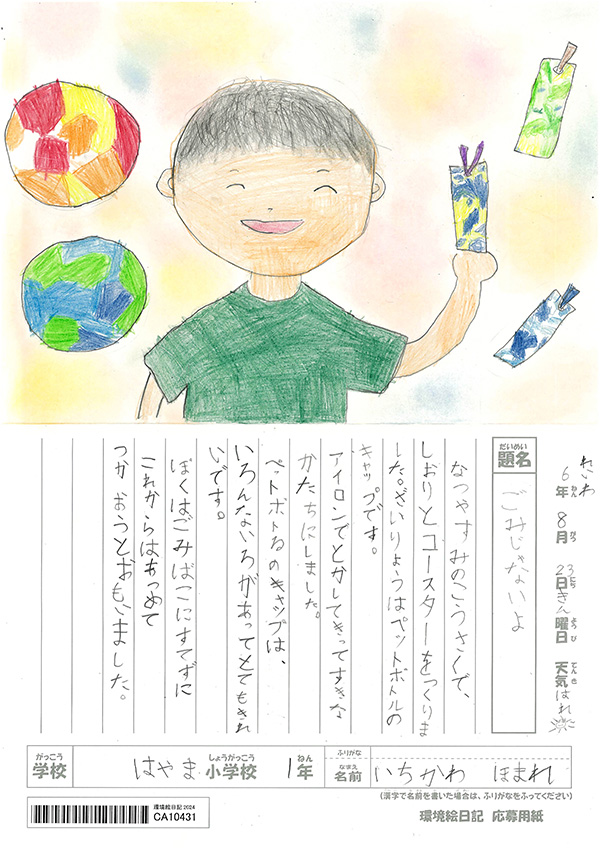 れいわ 6年 8月 23日 きん曜日 天気 はれ
ねん がつ にち ようび てんき
だいめい
題名 ごみじゃないよ
なつやすみのこうさくで、
しおりとコースターをつくりま
した。ざいりょうはペットボトルの
キャップです。
アイロンでとかしてきってすきな
かたちにしました。
ペットボトルのキャップは、
いろんないろがあってとてもきれ
いです。
ぼくはごみばこにすてずに
これからはあつめて
つかおうとおもいました。
がっこう しょうがっこう ねん ふりがな
学校 はやま小学校 1年 なまえ 名前 いちかわ ほまれ
(漢字で名前を書いた場合は、ふりがなをふってください)
環境絵日記 2024
CA10431
環境絵日記 応募用紙